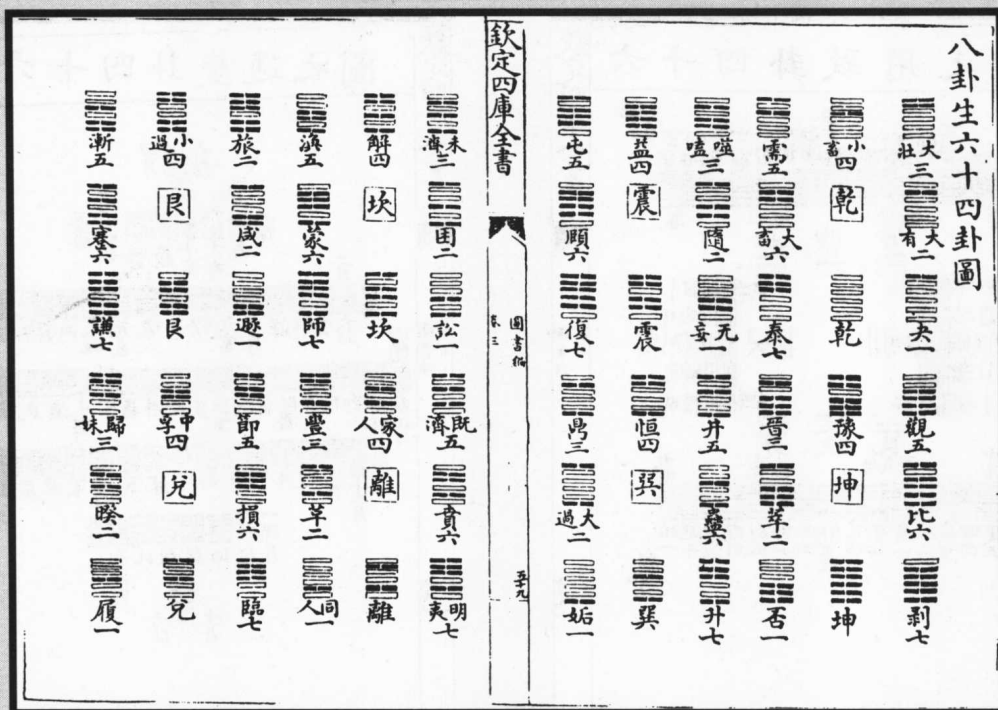 八卦生六十四卦圖
大壯三
大有二
夬一
觀五
比六
剥七
小畜四
乾
乾
豫四
坤
坤
需五
大畜六
泰七
晉三
萃二
否一
噬嗑三
隨二
无妄一
井五
蠱六
升七
益四
震
震
恒四
巽
巽
屯五
頤六
復七
鼎三
大過二
姤一
欽定四庫全書
圖書編
卷三
五十九
未濟三
困二
訟一
既濟五
賁六
明夷七
解四
坎
坎
家人四
離
離
渙五
蒙六
師七
豐三
革二
同人一
旅二
咸二
遯一
節五
損六
臨七
小過四
艮
艮
中孚四
兌
兌
漸五
蹇六
謙七
歸妹三
睽二
履一